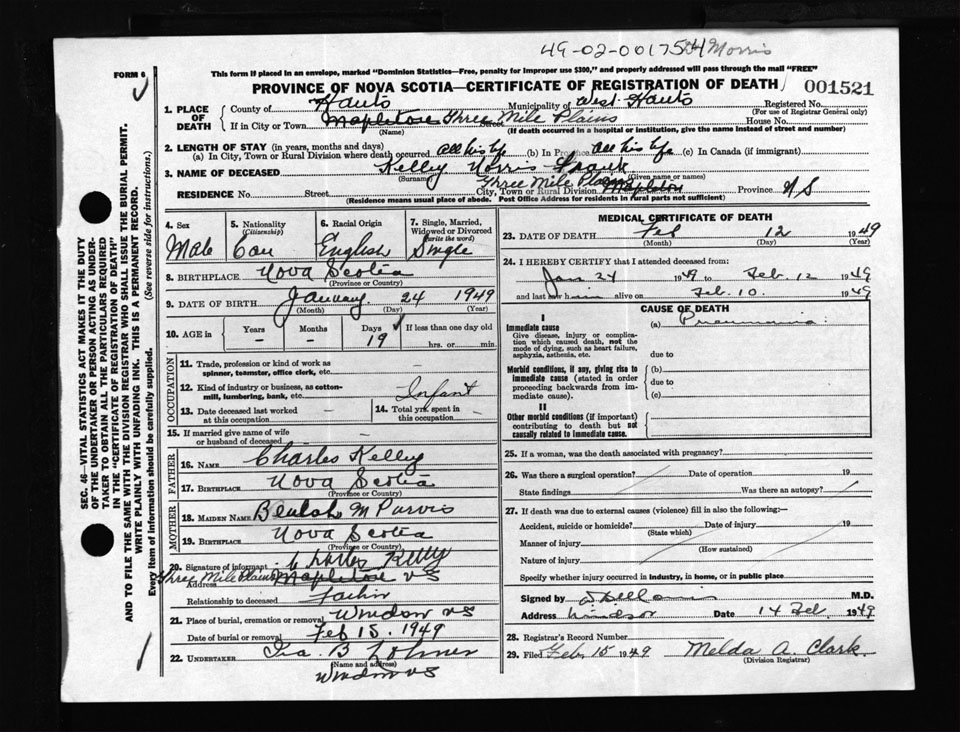 49-02-001754 Morris
FORM 6
This form if placed in an envelope, marked "Dominion Statistics—Free, penalty for improper use $300," and properly addressed will pass through the mail "FREE"
PROVINCE OF NOVA SCOTIA—CERTIFICATE OF REGISTRATION OF DEATH
001521
1. PLACE OF DEATH
County of Hants Municipality of West Hants Registered No.
(For use of Registrar General only)
If in City or Town Mapleton Three Mile Plains Street House No.
(Name) (If death occurred in a hospital or institution, give the name instead of street and number)
2. LENGTH OF STAY (in years, months and days)
(a) In City, Town or Rural Division where death occurred All his life (b) In Province All his life (c) In Canada (if immigrant)
3. NAME OF DECEASED Kelley Norris Frank
(Surname) (Given name or names)
RESIDENCE No. Street City, Town or Rural Division Three Mile Plains Mapleton Province N S
(Residence means usual place of abode. Post Office Address for residents in rural parts not sufficient)
4. Sex Male
5. Nationality (Citizenship) Can
6. Racial Origin English
7. Single, Married, Widowed or Divorced (write the word) Single
8. BIRTHPLACE Nova Scotia
(Province or Country)
9. DATE OF BIRTH January 24 1949
(Month) (Day) (Year)
10. AGE in Years Months Days If less than one day old
- - 19 hrs. or min.
OCCUPATION
11. Trade, profession or kind of work as spinner, teamster, office clerk, etc.
12. Kind of industry or business, as cotton-mill, lumbering, bank, etc. Infant
13. Date deceased last worked at this occupation -
14. Total yrs. spent in this occupation -
15. If married give name of wife or husband of deceased -
FATHER
16. NAME Charles Kelley
17. BIRTHPLACE Nova Scotia
(Province or Country)
MOTHER
18. MAIDEN NAME Beulah M Purvis
19. BIRTHPLACE Nova Scotia
(Province or Country)
20. Signature of informant Charles Kelly
Address Three Mile Plains Mapleton NS
Relationship to deceased Father
21. Place of burial, cremation or removal Windsor NS
Date of burial or removal Feb 15. 1949
22. UNDERTAKER Ira B Lohnes
(Name and address)
Windsor NS
MEDICAL CERTIFICATE OF DEATH
23. DATE OF DEATH Feb 12 1949
(Month) (Day) (Year)
24. I HEREBY CERTIFY that I attended deceased from:
Jan 24 1949 to Feb. 12 1949
and last saw him alive on Feb. 10. 1949
CAUSE OF DEATH
I
Immediate cause (a) Pneumonia:
Give disease, injury or complication which caused death, not the mode of dying, such as heart failure, asphyxia, asthenia, etc.
due to
Morbid conditions, if any, giving rise to immediate cause (stated in order proceeding backwards from immediate cause).
(b)
due to
(c)
II
Other morbid conditions (if important) contributing to death but not causally related to immediate cause.
25. If a woman, was the death associated with pregnancy?
26. Was there a surgical operation? Date of operation 19
State findings Was there an autopsy?
27. If death was due to external causes (violence) fill in also the following:—
Accident, suicide or homicide? Date of injury 19
(State which)
Manner of injury
(How sustained)
Nature of injury
Specify whether injury occurred in industry, in home, or in public place
Signed by M.D.
Address Windsor Date 14 Feb. 1949
28. Registrar's Record Number
29. Filed Feb 15 1949 Melda A. Clark.
(Division Registrar)
SEC. 46—VITAL STATISTICS ACT MAKES IT THE DUTY
OF THE UNDERTAKER OR PERSON ACTING AS UNDER-
TAKER TO OBTAIN ALL THE PARTICULARS REQUIRED
IN THE "CERTIFICATE OF REGISTRATION OF DEATH"
AND TO FILE THE SAME WITH THE DIVISION REGISTRAR WHO SHALL ISSUE THE BURIAL PERMIT.
WRITE PLAINLY WITH UNFADING INK. THIS IS A PERMANENT RECORD.
Every item of information should be carefully supplied. (See reverse side for instructions.)